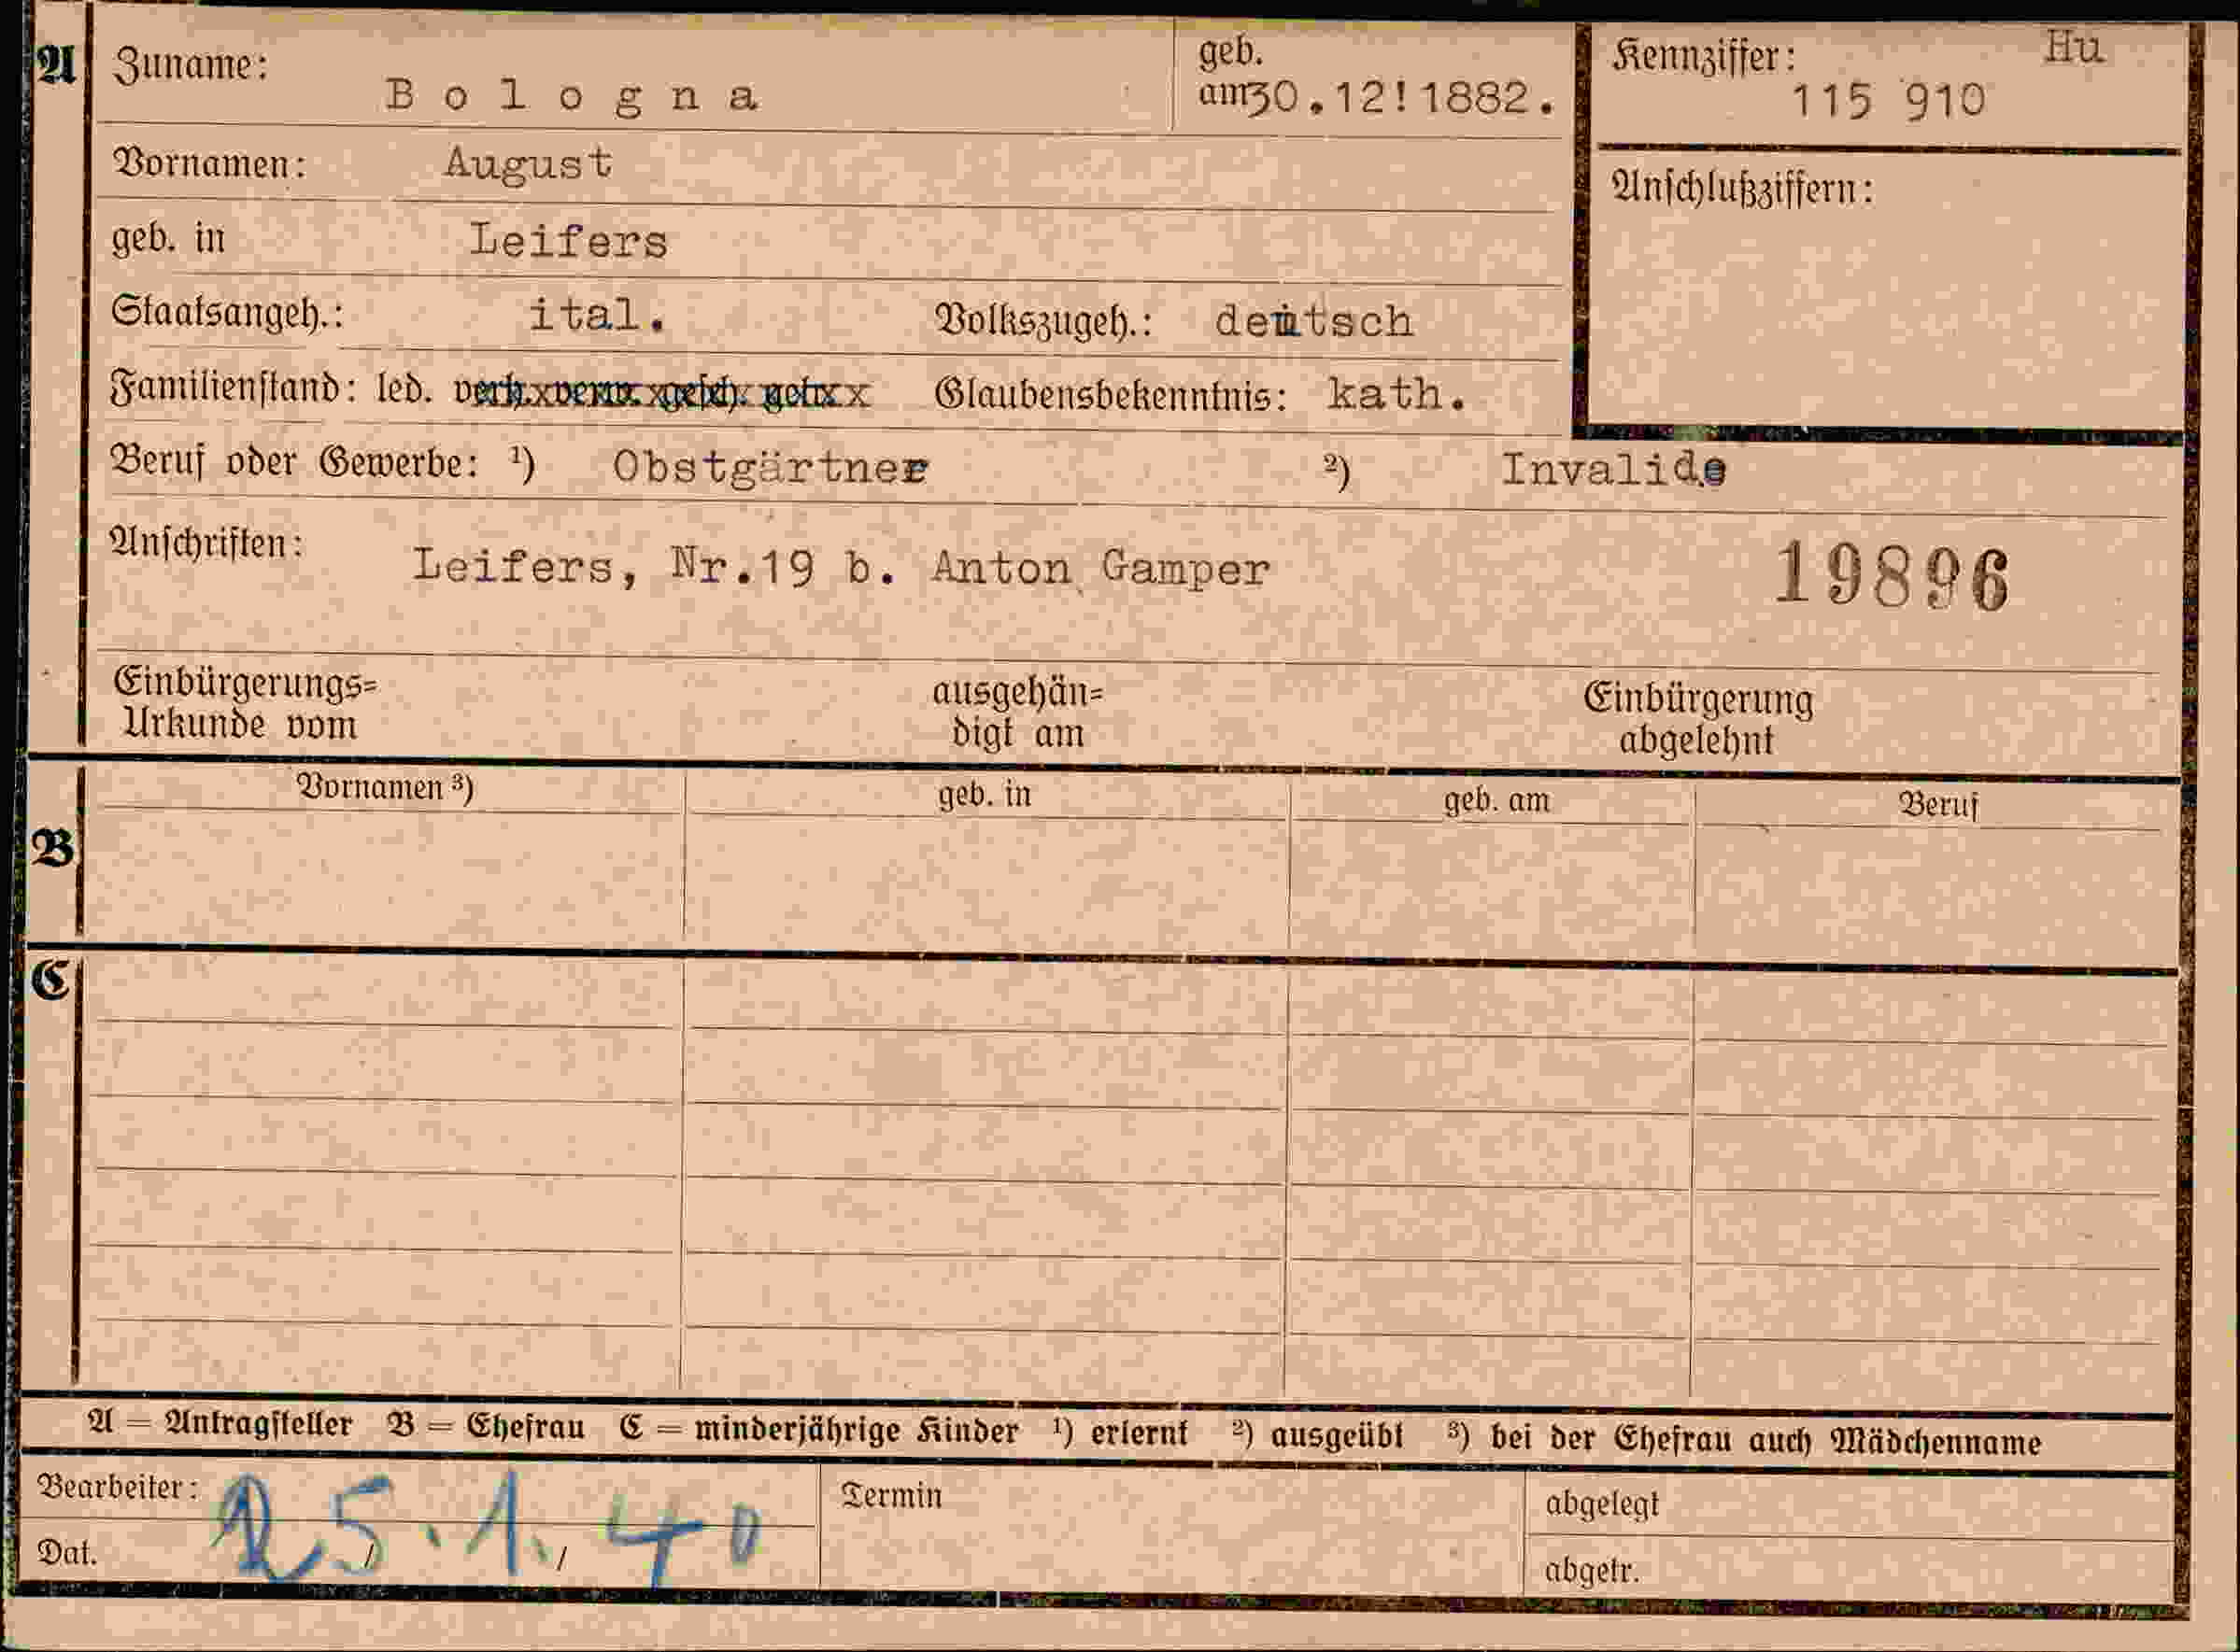 A Zuname: Bologna geb. am 30.12!1882. Kennziffer: Hu
115 910
Vornamen: August Anschlußziffern:
geb. in Leifers
Staatsangeh.: ital. Volkszugeh.: deutsch
Familienstand: led. verh. verw. gesch. getr. Glaubensbekenntnis: kath.
Beruf oder Gewerbe: ¹) Obstgärtner ²) Invalide
Anschriften: Leifers, Nr.19 b. Anton Gamper 19896
Einbürgerungs= ausgehän= Einbürgerung
Urkunde vom digt am abgelehnt
B Vornamen ³) geb. in geb. am Beruf
C
A = Antragsteller B = Ehefrau C = minderjährige Kinder ¹) erlernt ²) ausgeübt ³) bei der Ehefrau auch Mädchenname
Bearbeiter: Termin abgelegt
Dat. 25.1.40 abgetr.